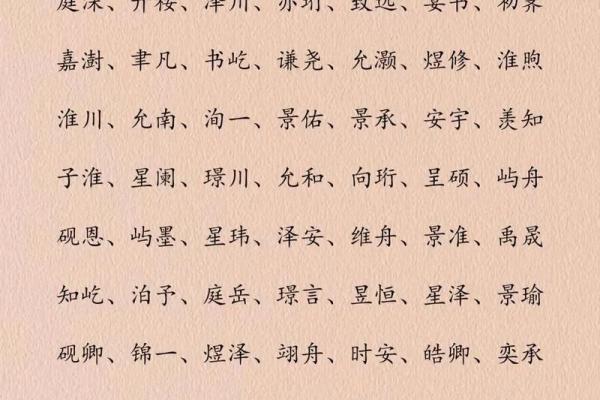 庭深、升棱、泽川、亦珩、致远、宴书、初霁
嘉澍、聿凡、书屹、谦尧、允灏、煜修、淮煦
淮川、允南、洵一、景佑、景承、安宇、羡知
子淮、星阑、璟川、允和、向珩、呈硕、屿舟
砚恩、屿墨、星玮、泽安、维舟、景准、禹晟
知屹、泊予、庭岳、璟言、昱恒、星泽、景瑜
砚卿、锦一、煜泽、翊舟、时安、皓卿、奕承